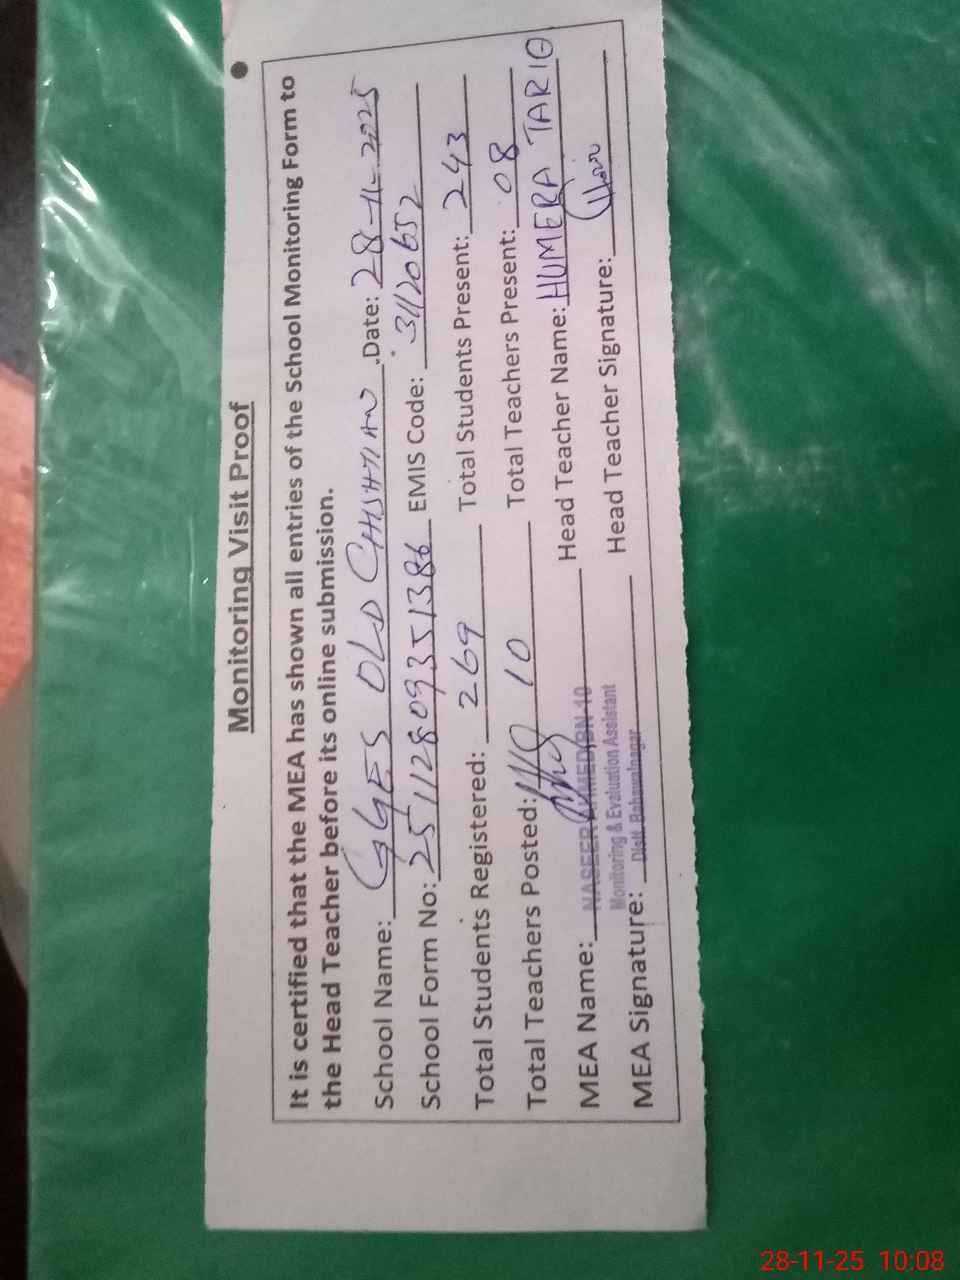 Monitoring Visit Proof
It is certified that the MEA has shown all entries of the School Monitoring Form to
the Head Teacher before its online submission.
School Name: GGES OLD CHISHTIAN Date: 28-11-2025
School Form No: 25112809351386 EMIS Code: 31120652
Total Students Registered: 269 Total Students Present: 243
Total Teachers Posted: 10 Total Teachers Present: 08
MEA Name: NASEER AHMED BN-10 Head Teacher Name: HUMERA TARIQ
Monitoring & Evaluation Assistant
MEA Signature: Distt. Bahawalnagar Head Teacher Signature:
28-11-25 10:08